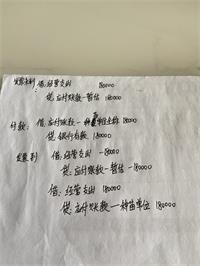 发票未到: 借:经营支出 180000
贷:应付账款—暂估 180000
付款: 借:应付账款—种苗单位全称 180000
贷:银行存款 180000
发票到: 借:经营支出 -180000
贷:应付账款—暂估 -180000
借:经营支出 180000
贷:应付账款—种苗单位 180000